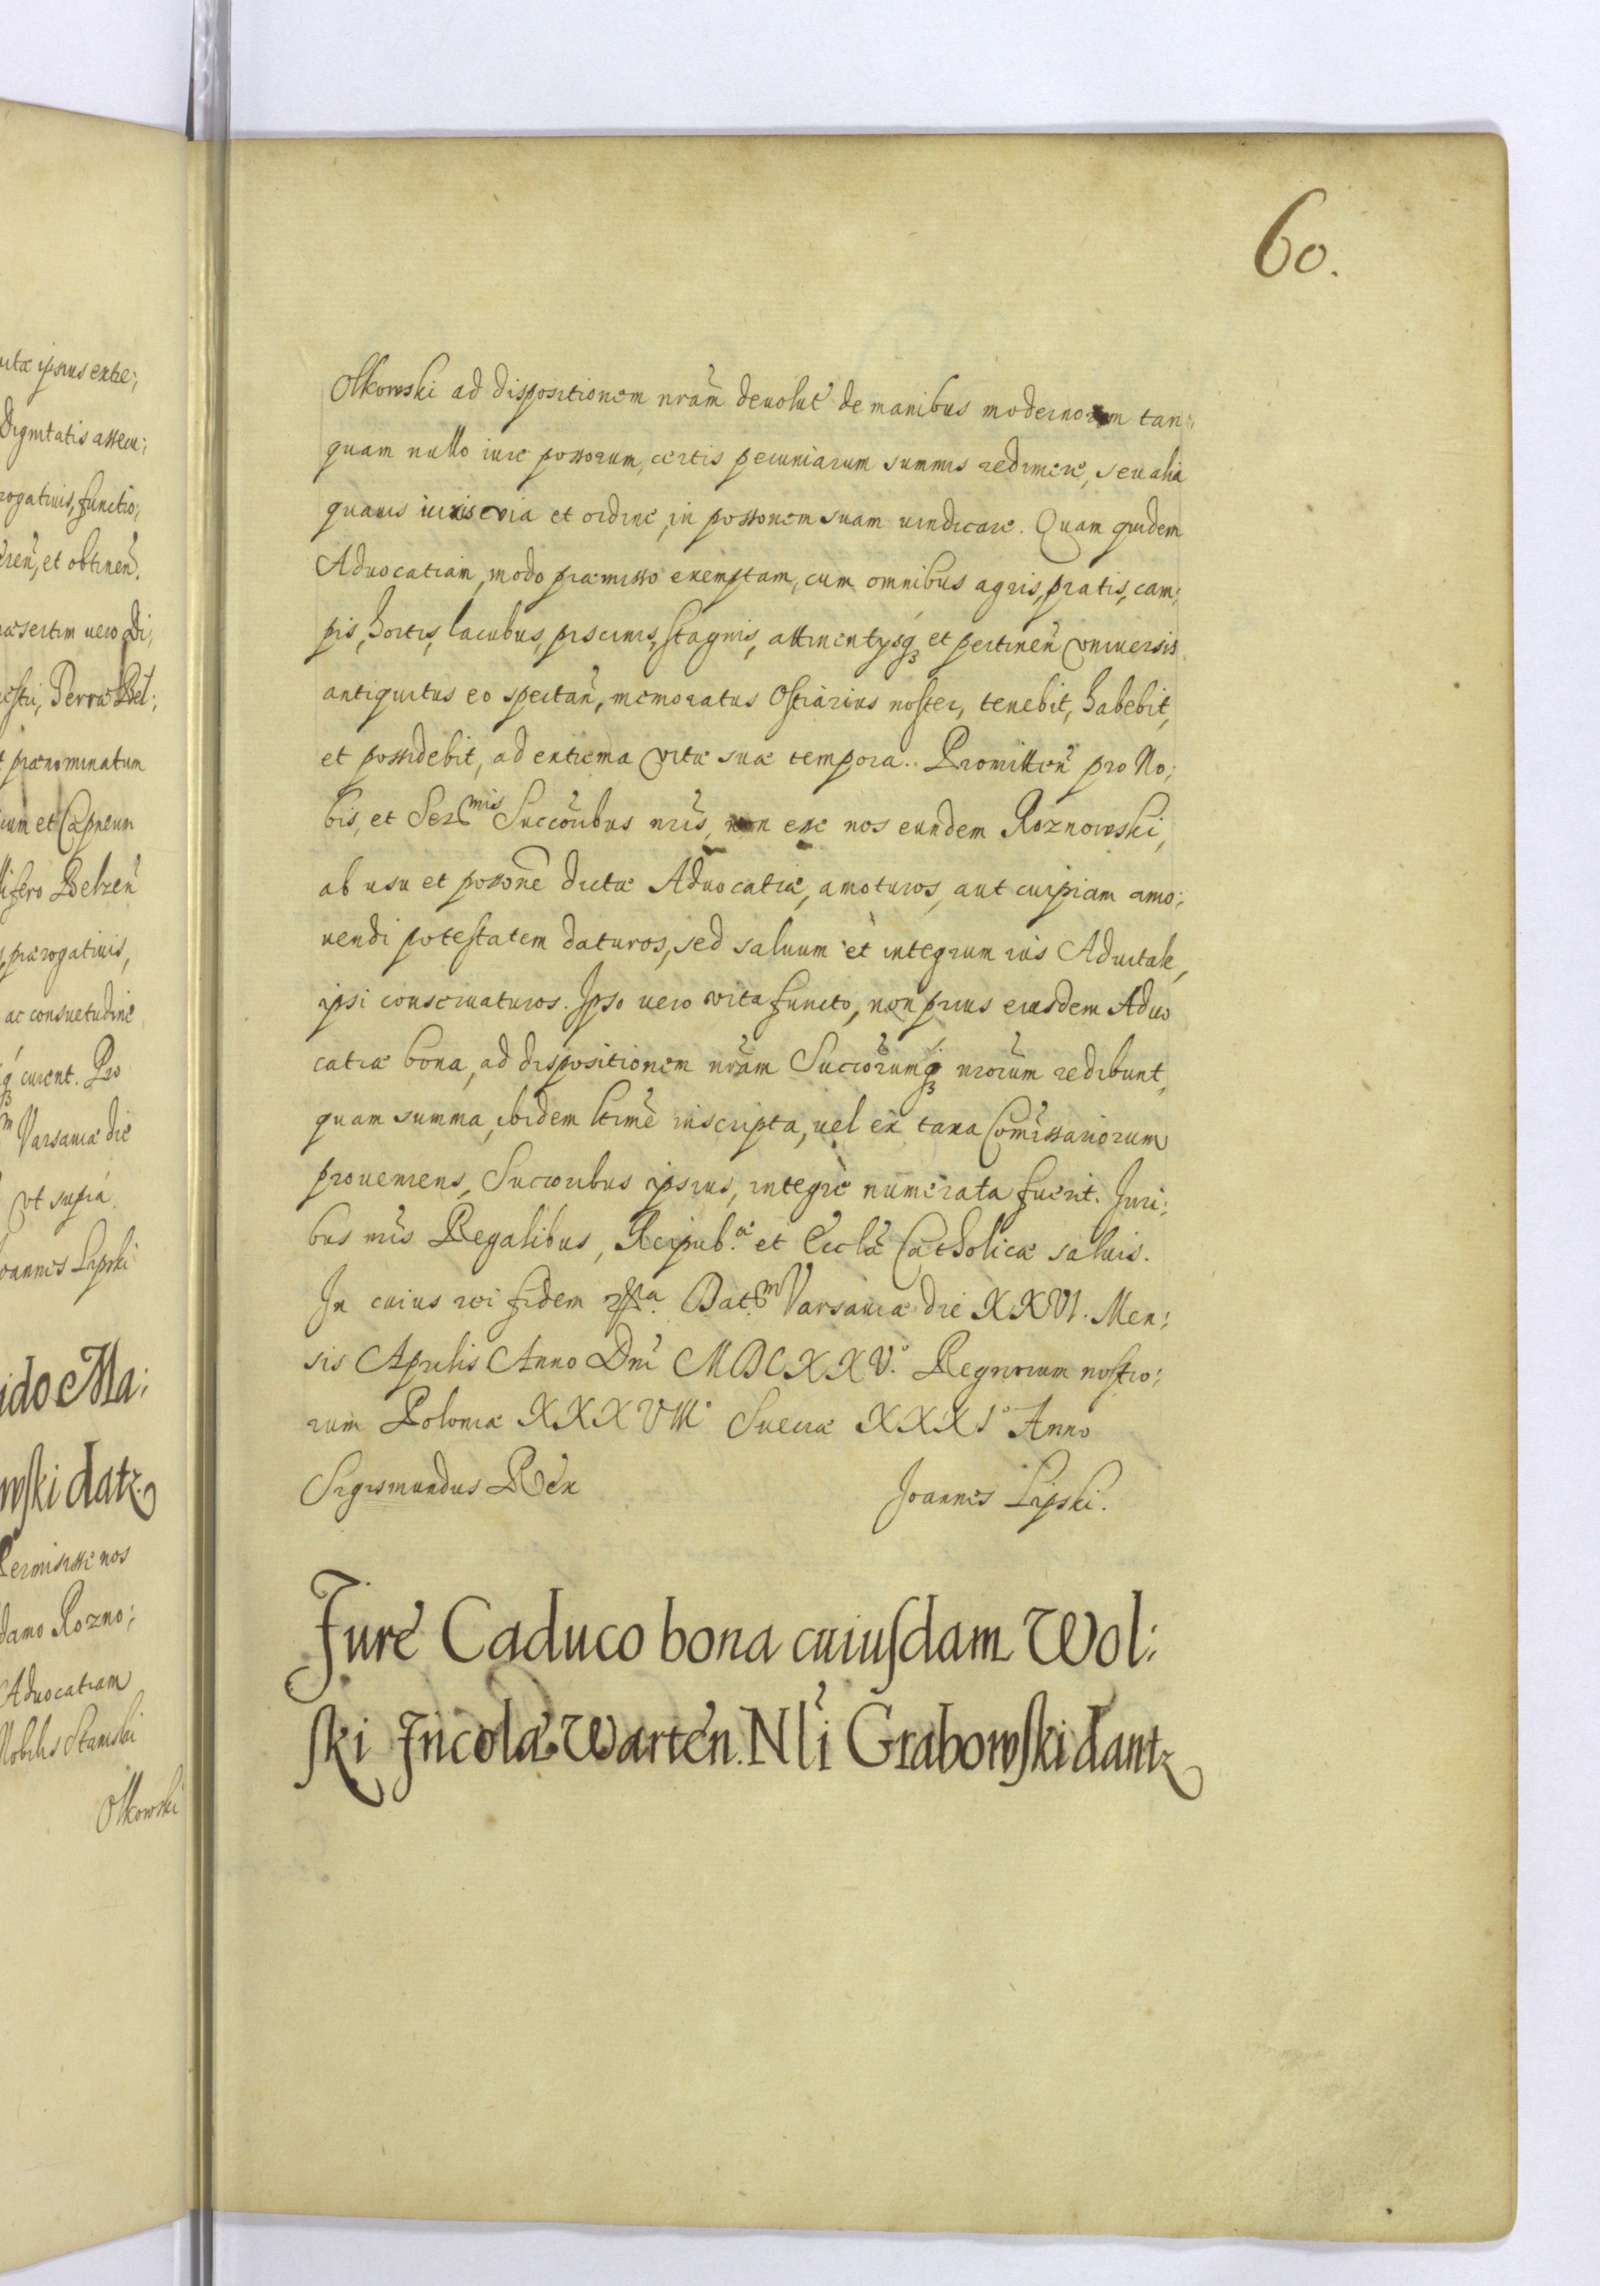 60.
Olkowski ad dispositionem nrãm deuolut̃ de manibus modernorum tan;
quam nullo iure possorum, certis pecuniarum summis redimere, seu alia
quauis iuris via et ordine, in possonem suam uindicare. Quam quidem
Aduocatiam, modo præmisso exemptam, cum omnibus agris, pratis, cam;
pis, hortis, lacubus, piscinis, stagnis, attinentysq3 et pertineñ vniuersis
antiquitus eo spectañ, memoratus Ostiarius noster, tenebit, habebit,
et possidebit, ad extrema vitæ suæ tempora. Promitteñ pro No;
bis, et Ser.mis Succõribus nris, non esse nos eundem Roznowski,
ab usu et possone dictæ Aduocatiæ, amoturos, aut cuipiam amo;
uendi potestatem daturos, sed saluum et integrum ius Aduitale,
ipsi conseruaturos. Ipso uero vita functo, non prius eiusdem Aduo
catiæ bona, ad dispositionem nrãm Succõrumq3 nrõrum redibunt,
quam summa, ibidem ltimè inscripta, uel ex taxa Com̃issariorum
proueniens, Succoribus ipsius, integrè numerata fuerit. Juri;
bus nris Regalibus, Reipub.æ et Eccl̃æ Catholicæ saluis.
In cuius rei fidem Dat.m Varsauiæ die XXVI. Men;
sis Aprilis Anno Dni MDCXXV.° Regnorum nostro;
rum Poloniæ XXXVIII° Sueciæ XXXI° Anno
Sigismundus Rex Joannes Lipski.
Jure Caduco bona cuiusdam Wol;
ski Incolæ Warteñ. Nl̃i Grabowski dantz
itæ ipsius extre;
Dignitatis assecu;
rogatiuis, functio;
et obtineñ.
uero Di;
Terræ Bel;
prænominatum
et Capneum
Belzeñ
prærogatiuis,
ac consuetudine
curent. Pro
Varsauiæ die
vt supra.
Joannes Lipski
ido Ma;
wski datz
Permisisse nos
damo Rozno;
Aduocatiam
Nobilis Stanislai
Olkowski